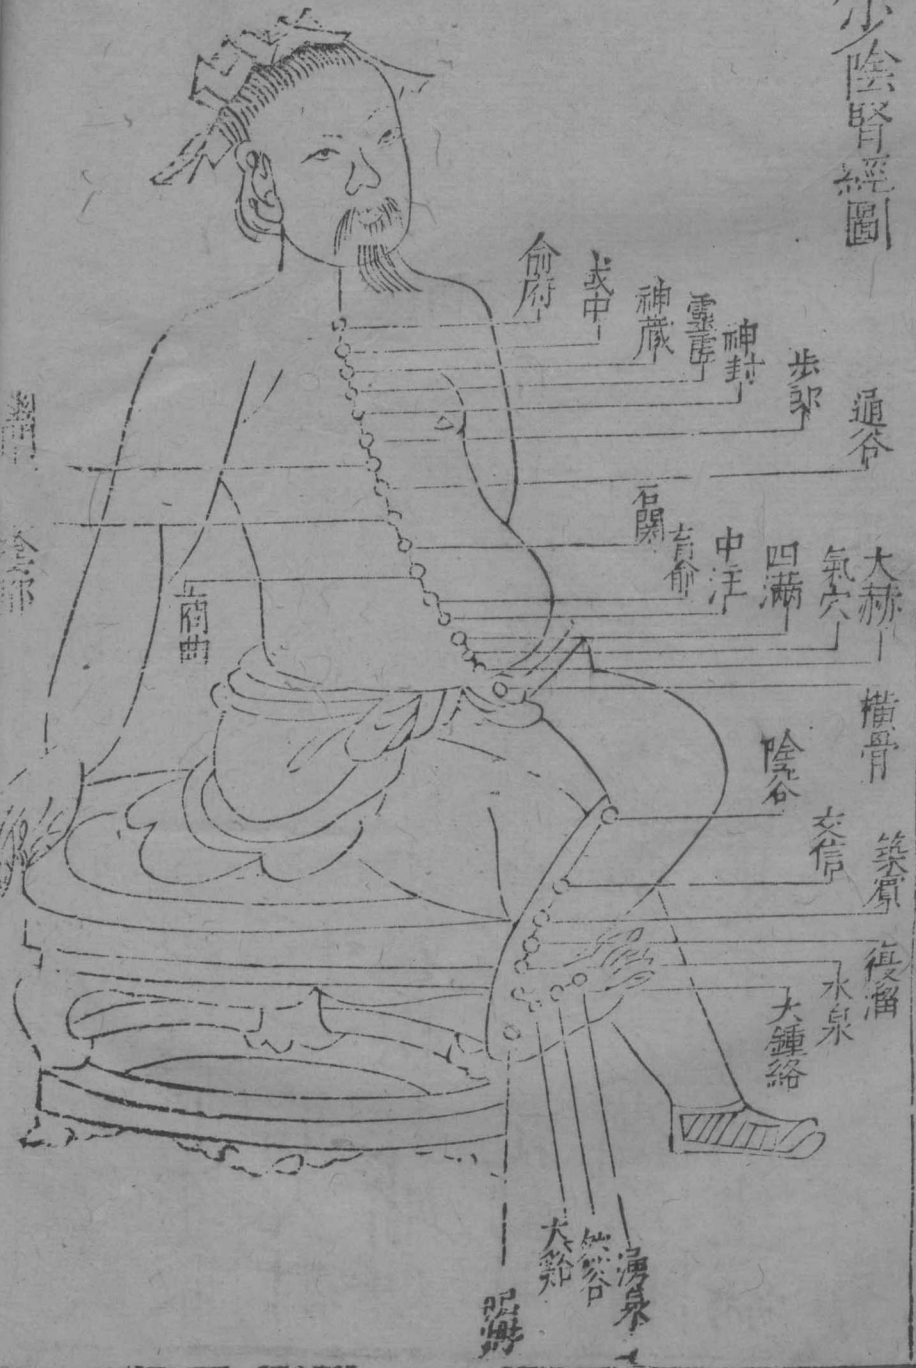 少陰腎經圖
俞府
彧中
神藏
靈墟
神封
步郎
通谷
幽門
陰都
石関
商曲
肓俞
中注
四滿
氣穴
大赫
橫骨
陰谷
交信
築賓
復溜
水泉
大鍾絡
大谿
然谷
湧泉
照海